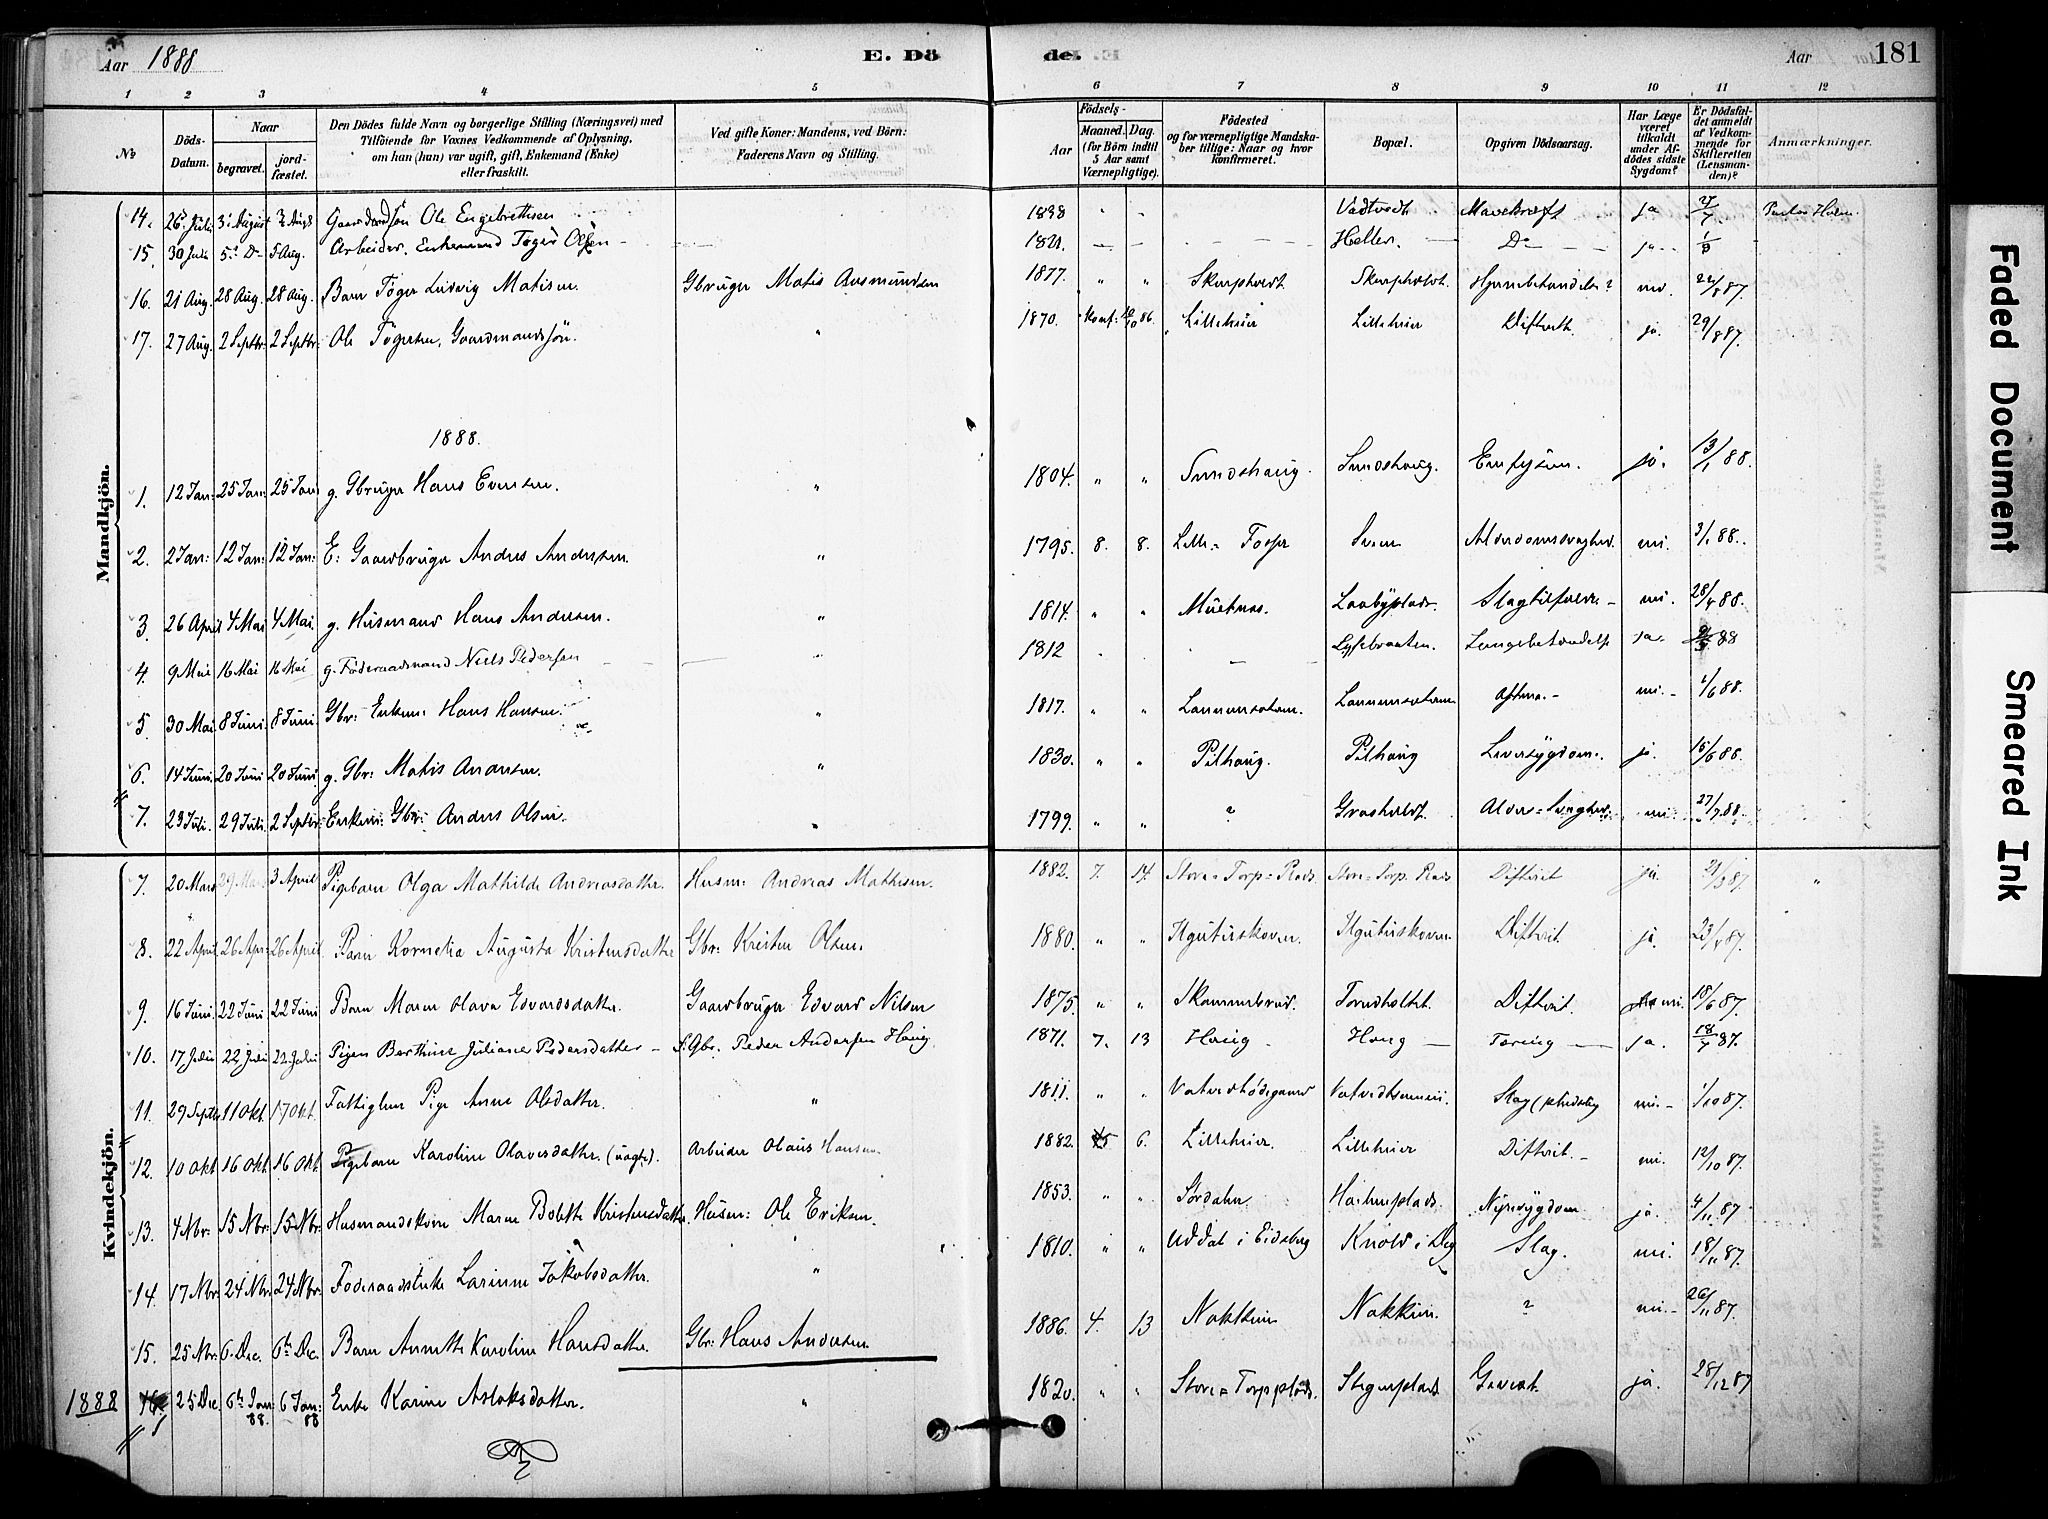 Aar 1888
E. Dö
de.
Aar
181
1 2 3 4 5 6 7 8 9 10 11 12
No
Döds-Datum.
Naar
begravet.
jord-fæstet.
Den Dödes fulde Navn og borgerlige Stilling (Næringsvei) med
Tilföiende for Voxnes Vedkommende af Oplysning,
om han (hun) var ugift, gift, Enkemand (Enke)
eller fraskilt.
Ved gifte Koner: Mandens, ved Börn:
Faderens Navn og Stilling.
Aar
Födsels-
Maaned. Dag.
(for Börn indtil
5 Aar samt
Værnepligtige).
Födested
og for værnepligtige Mandska-
ber tillige: Naar og hvor
konfirmeret.
Bopæl.
Opgiven Dödsaarsag.
Har Læge
været
tilkaldt
under Af-
dödes sidste
Sygdom?
Er Dödsfal-
det anmeldt
af Vedkom-
mende for
Skifteretten
(Lensman-
den)?
Anmærkninger.
Mandkjön.
14. 26 Juli 3 August 3 Aug Gaardmandssøn Ole Engebrethsen 1838 " " Vadtvedt ja
15. 30 Juli 5 Do 5 Aug. Arbeider, Enkemand Töger Olsen 1821. Heller. Do ja
16. 21 Aug. 28 Aug. 28 Aug. Barn Töger Ludvig Matisen Gbruger Matis Aasmundsen 1877. " " Skarpholdt Skarpholdt. nei. 22/8 87.
17. 27 Aug. 2 Septbr. 2 Septbr: Ole Tögersen, Gaardmandssön. " 1870. Konf: 86. Lilleheier Lilleheier Difterit. ja. 29/8 87.
1888.
1. 12 Jan: 25 Jan: 25 Jan g. Gbruger Hans Evensen. " 1804. " " Sundshaug. Sundshaug. Emfysem. ja. 13/1 88.
2. 2 Jan: 12 Jan: 12 Jan: E: Gaardbruger Anders Andersen. " 1795. 8. 8. Lille-Torper Alderdomssvaghed. nei. 3/1 88.
3. 26 April 4 Mai 4 Mai. g. Husmand Hans Andersen. " 1814. " " Laabyplads. Slagtilfælde nei. 28/4 88.
4. 9 Mai 16 Mai 16 Mai g. Föderaadsmand Niels Pedersen 1812 Lysebraaten. Lungebetændelse ja. 88
5. 30 Mai 8 Juni 8 Juni. Gbr: Enkem: Hans Hansen. " 1817. " " Asthma. nei. 1/6 88.
6. 14 Juni. 20 Juni 20 Juni g. Gbr: Matis Andersen. " 1830. " " Pilhaug. Pilhaug Leversygdom. ja. 15/6 88.
7. 23 Juli. 29 Juli. 2 Septbr: Enkem: Gbr: Anders Olsen. " 1799. " " ? Grasholdt. Alders-Svaghed. nei. 27/7 88.
Kvindekjön.
7. 20 Mars 29 Mars 3 April Pigebarn Olga Mathilde Andreasdatter. Husm: Andreas Mathisen. 1882. 7. 14. Store-Torp-Plads. Store-Torp. Plads Difterit ja. 21/3 87. "
8. 22 April 26 Apr: 26 April. Barn Kornelia Augusta Kristensdatter Gbr: Kristen Olsen. 1880. " " Difterit. ja. 23/4 87.
9. 16 Juni. 22 Juni 22 Juni Barn Maren Olava Edvardsdatter. Gaardbruger Edvard Nilsen 1875. " " Skammelsrud. Tornholtet. Difterit. nei. 18/6 87.
10. 17 Juli 22 Juli 22 Juli Pigen Berthine Juliane Pedersdatter S. Gbr. Peder Andersen Haug. 1871. 7. 13 Haug Haug Tæring ja. 18/7 87.
11. 29 Septbr. 11 Okt. 17 Okt. Fattiglem Pige Anne Olsdatter. " 1811. " " nei 1/10 87.
12. 10 Okt 16 Okt 16 Okt Pigebarn Karoline Olavesdatter. (uægte). Arbeider Olaus Hansen. 1882. 6. Lilleheier. Lilleheier Difterit. nei. 12/10 87.
13. 4 Nbr: 15 Nbr: 15 Nbr Husmandskone Maren Bolette Kristensdatter. Husm: Ole Eriksen. 1853. " " Sördalen Nyresygdom ja. 4/11 87
14. 17 Nbr: 24 Nbr 24 Nbr: Föderaadsenke Larinne Jakobsdatter. " 1810. " " Uddal i Eidsberg Knold i Slag. nei. 18/11 87.
15. 25 Nbr: 6 Dec. 6te Dec. Barn Annette Karoline Hansdatter. Gbr: Hans Andersen. 1886. 4. 13 Nakkim Nakkim. ? nei. 26/11 87.
1888 1 25 Dec 6te Jan 88. 6 Jan: 88 Enke Karine Aslaksdatter. " 1820. " " Store-Torpplads. Stegenplads ja. 28/12 87
Faded Document
Smeared Ink